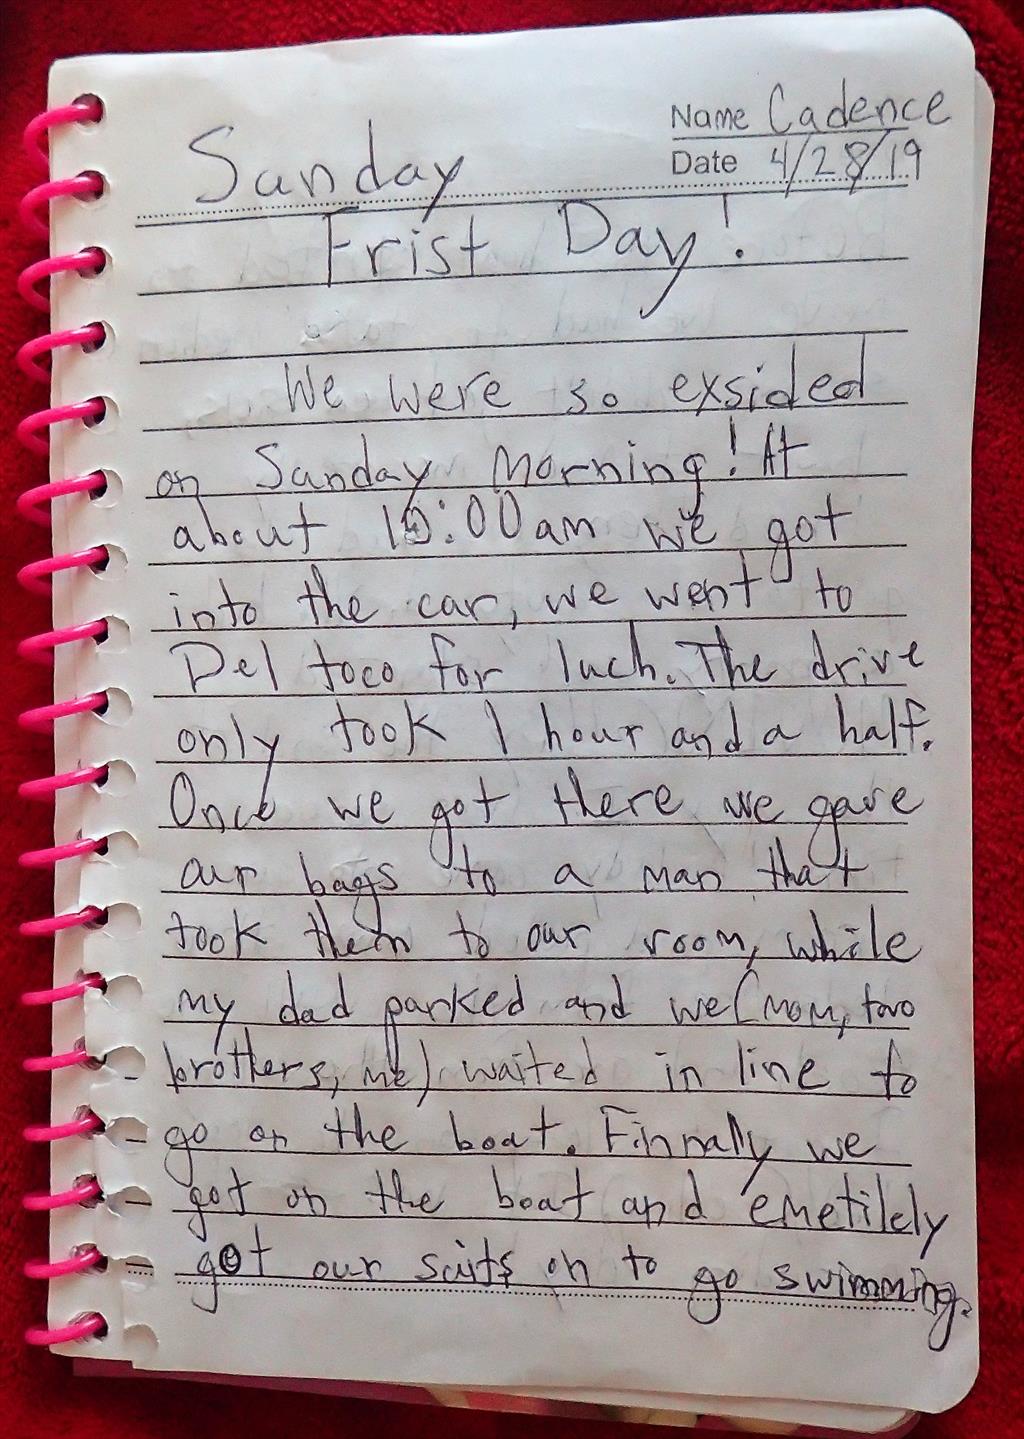 Name Cadence
Date 4/28/19
Sanday
Frist Day!
We were so exsided
on Sanday morning! At
about 10:00am we got
into the car, we went to
Del toco for luch. The drive
only took 1 hour and a half.
Once we got there we gave
our bags to a man that
took them to our room, while
my dad parked and we (mom, two
brothers, me) waited in line to
go on the boat. Finnally we
got on the boat and emetilely
got our suits on to go swimming.